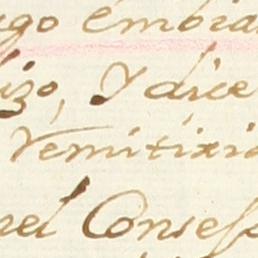 go embia
izo, Y dice
remitiri
el Conse